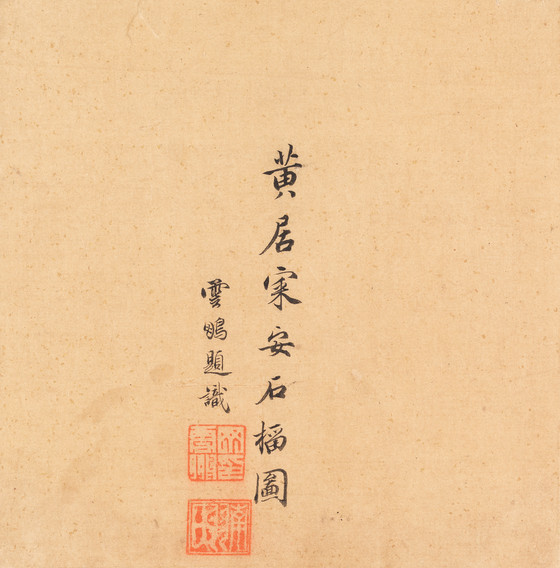 黃居寀安石榴圖
雲鵬題識